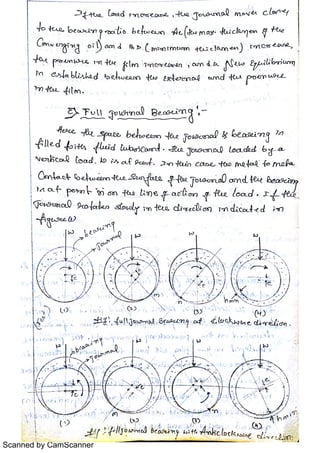 If the load increase, the journal moves closer
to the bearing ratio between
Converging oil) and (minimum thickness) increase,
the pressure in the film increases, and a New Equilibrium
is established between the External and the pressure
in the film.
Full Journal Bearing:-
Here the space between the journal & bearing is
filled with fluid lubricant. The journal loaded by a
vertical load. is at rest. In this case the metal to metal
Contact between the Surface of the journal and the bearing
is at point 'm' on the line of action of the load. If the
journal rotates slowly in the direction indicated in
figure
w bearing w w w
journal
m n hmin
(1) (2) (3) (4)
Fig: full journal bearing at Clockwise direction.
w bearing w w w
journal
m n hmin
(1) (2) (3) (4)
Fig: full journal bearing with Anticlockwise direction.
Scanned by CamScanner